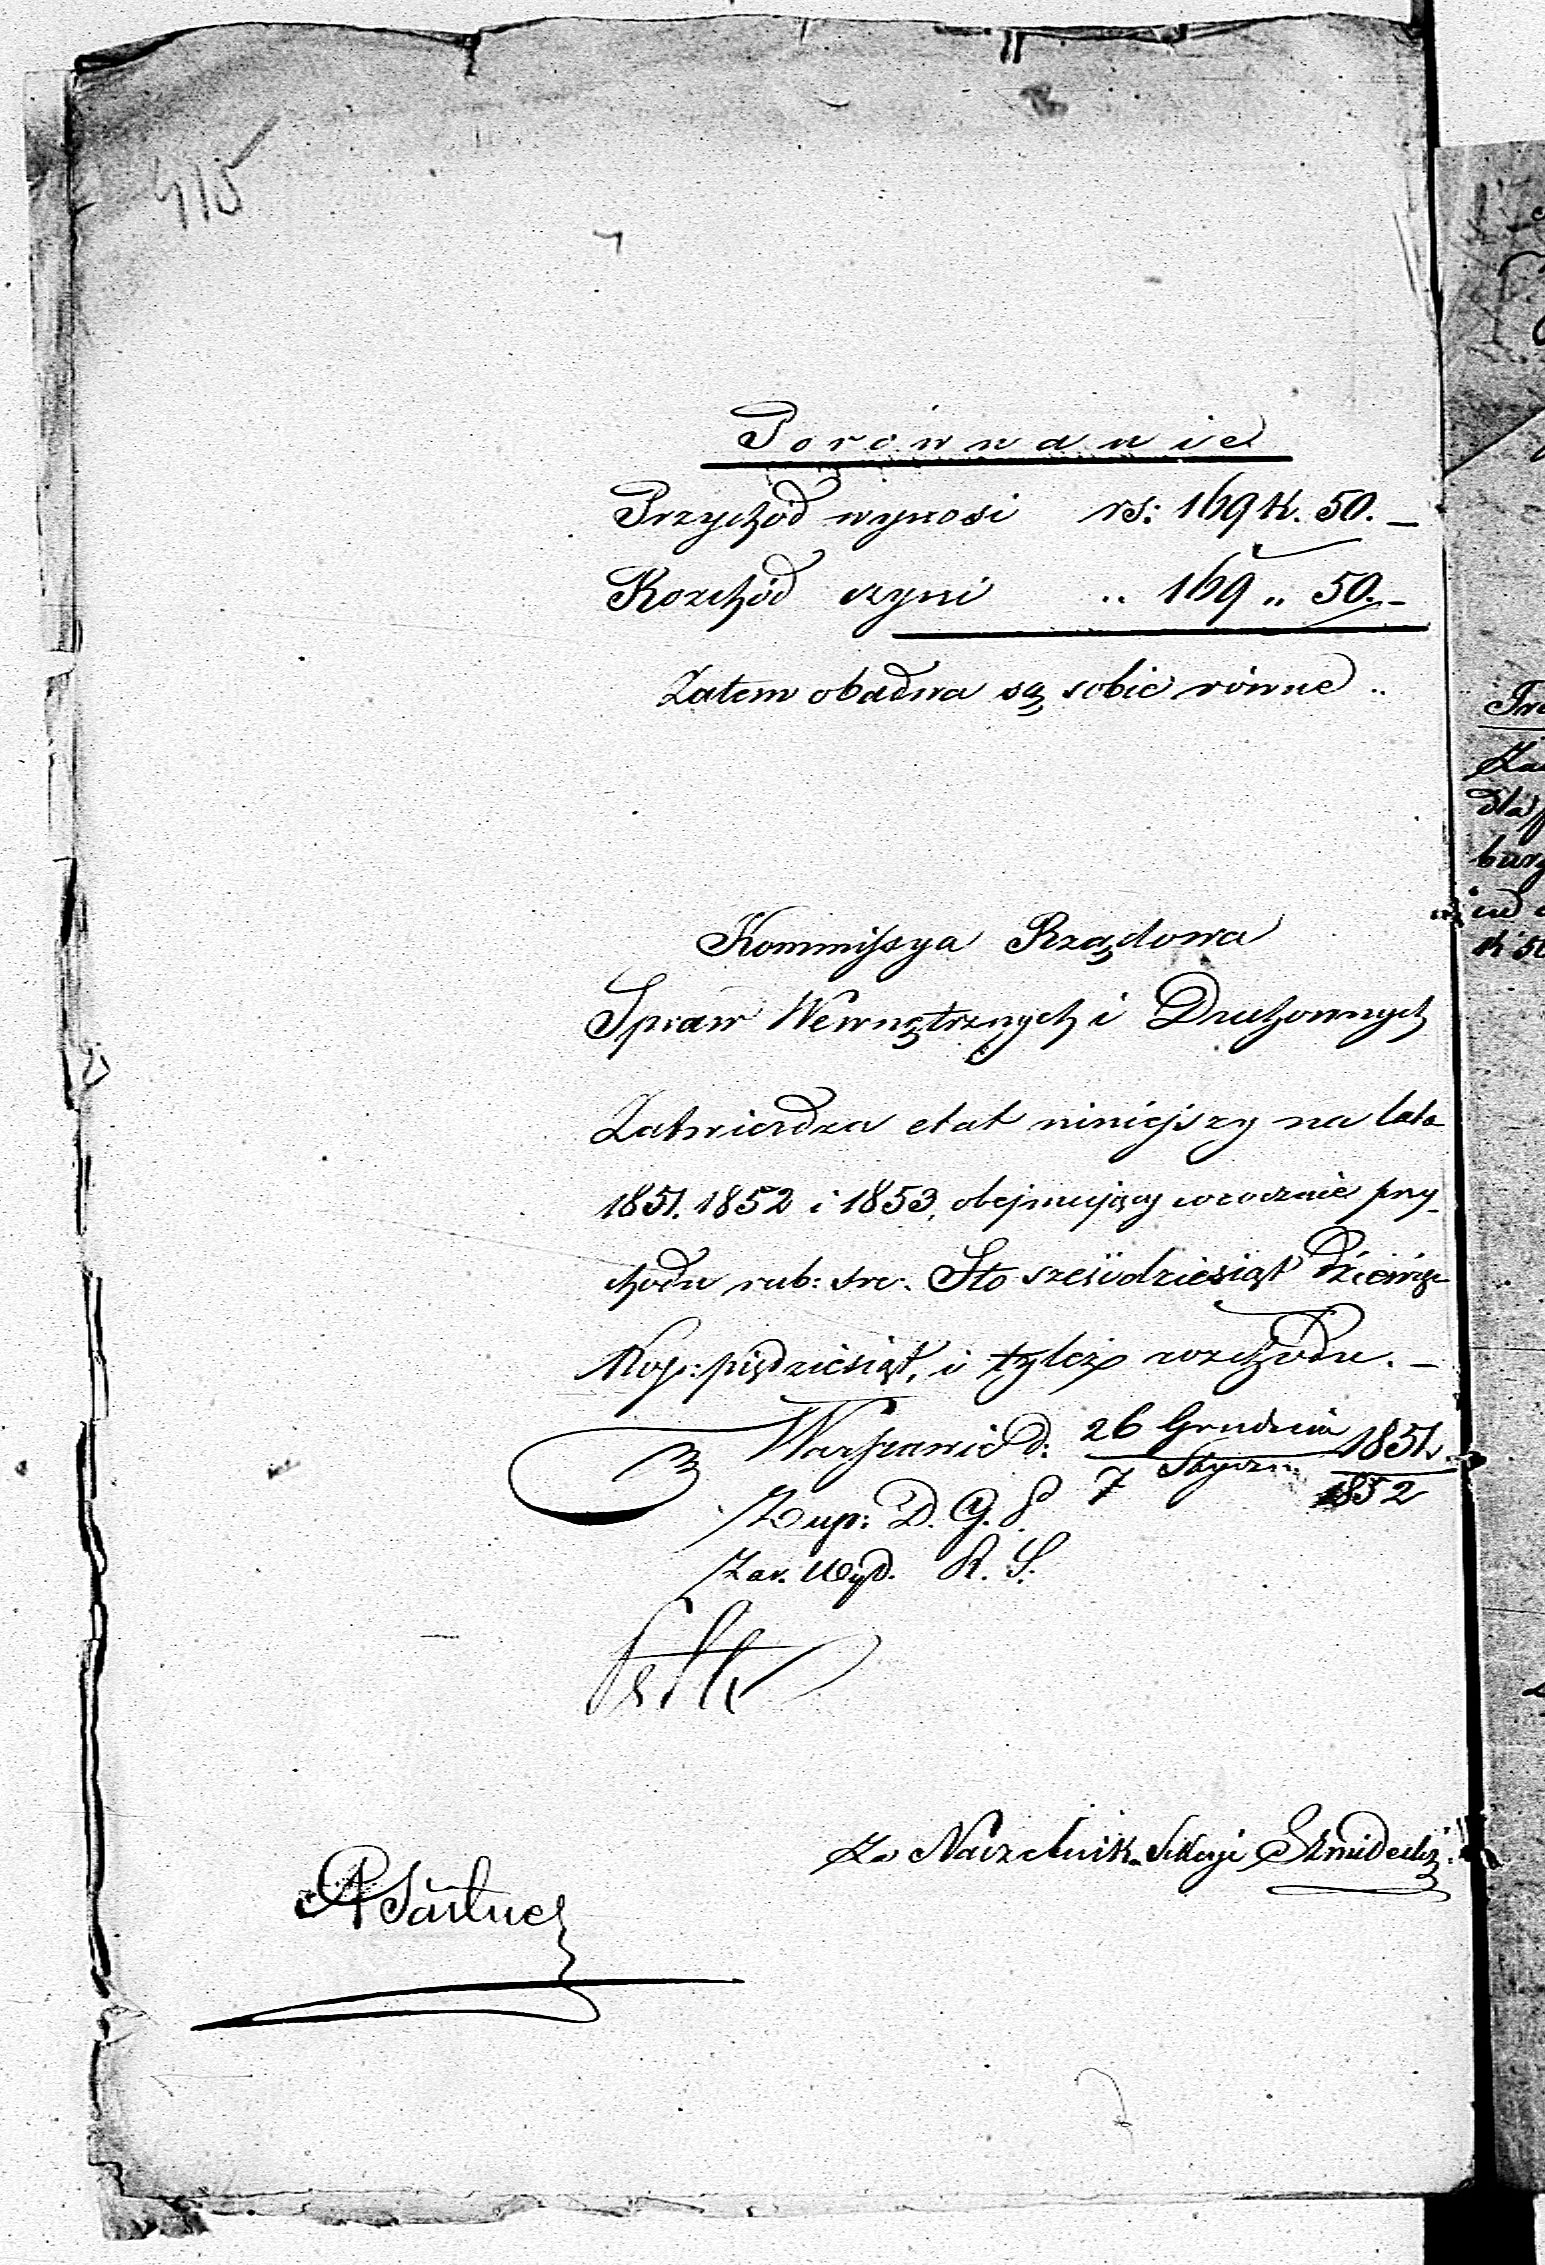 415
Porównanie
Przychód wynosi rs: 169 k. 50. _
Rozchód czyni „ 169 „ 50. _
Zatem obadwa są sobie równe „
Kommissya Rządowa
Spraw Wewnętrznych i Duchownych
Zatwierdza etat niniejszy na lata
1851. 1852 i 1853, obejmujący corocznie przy_
chodu rub: sre. Sto sześćdziesiąt dziewięć
Kop: pięćdziesiąt, i tyleż rozchodu. _
w Warszawie d: 26 Grudnia 1851.
7 Styczn. 1852
Z up: D. G. P.
Zar. Wyd. R. S.
Za Naczelnik. Sekcyi